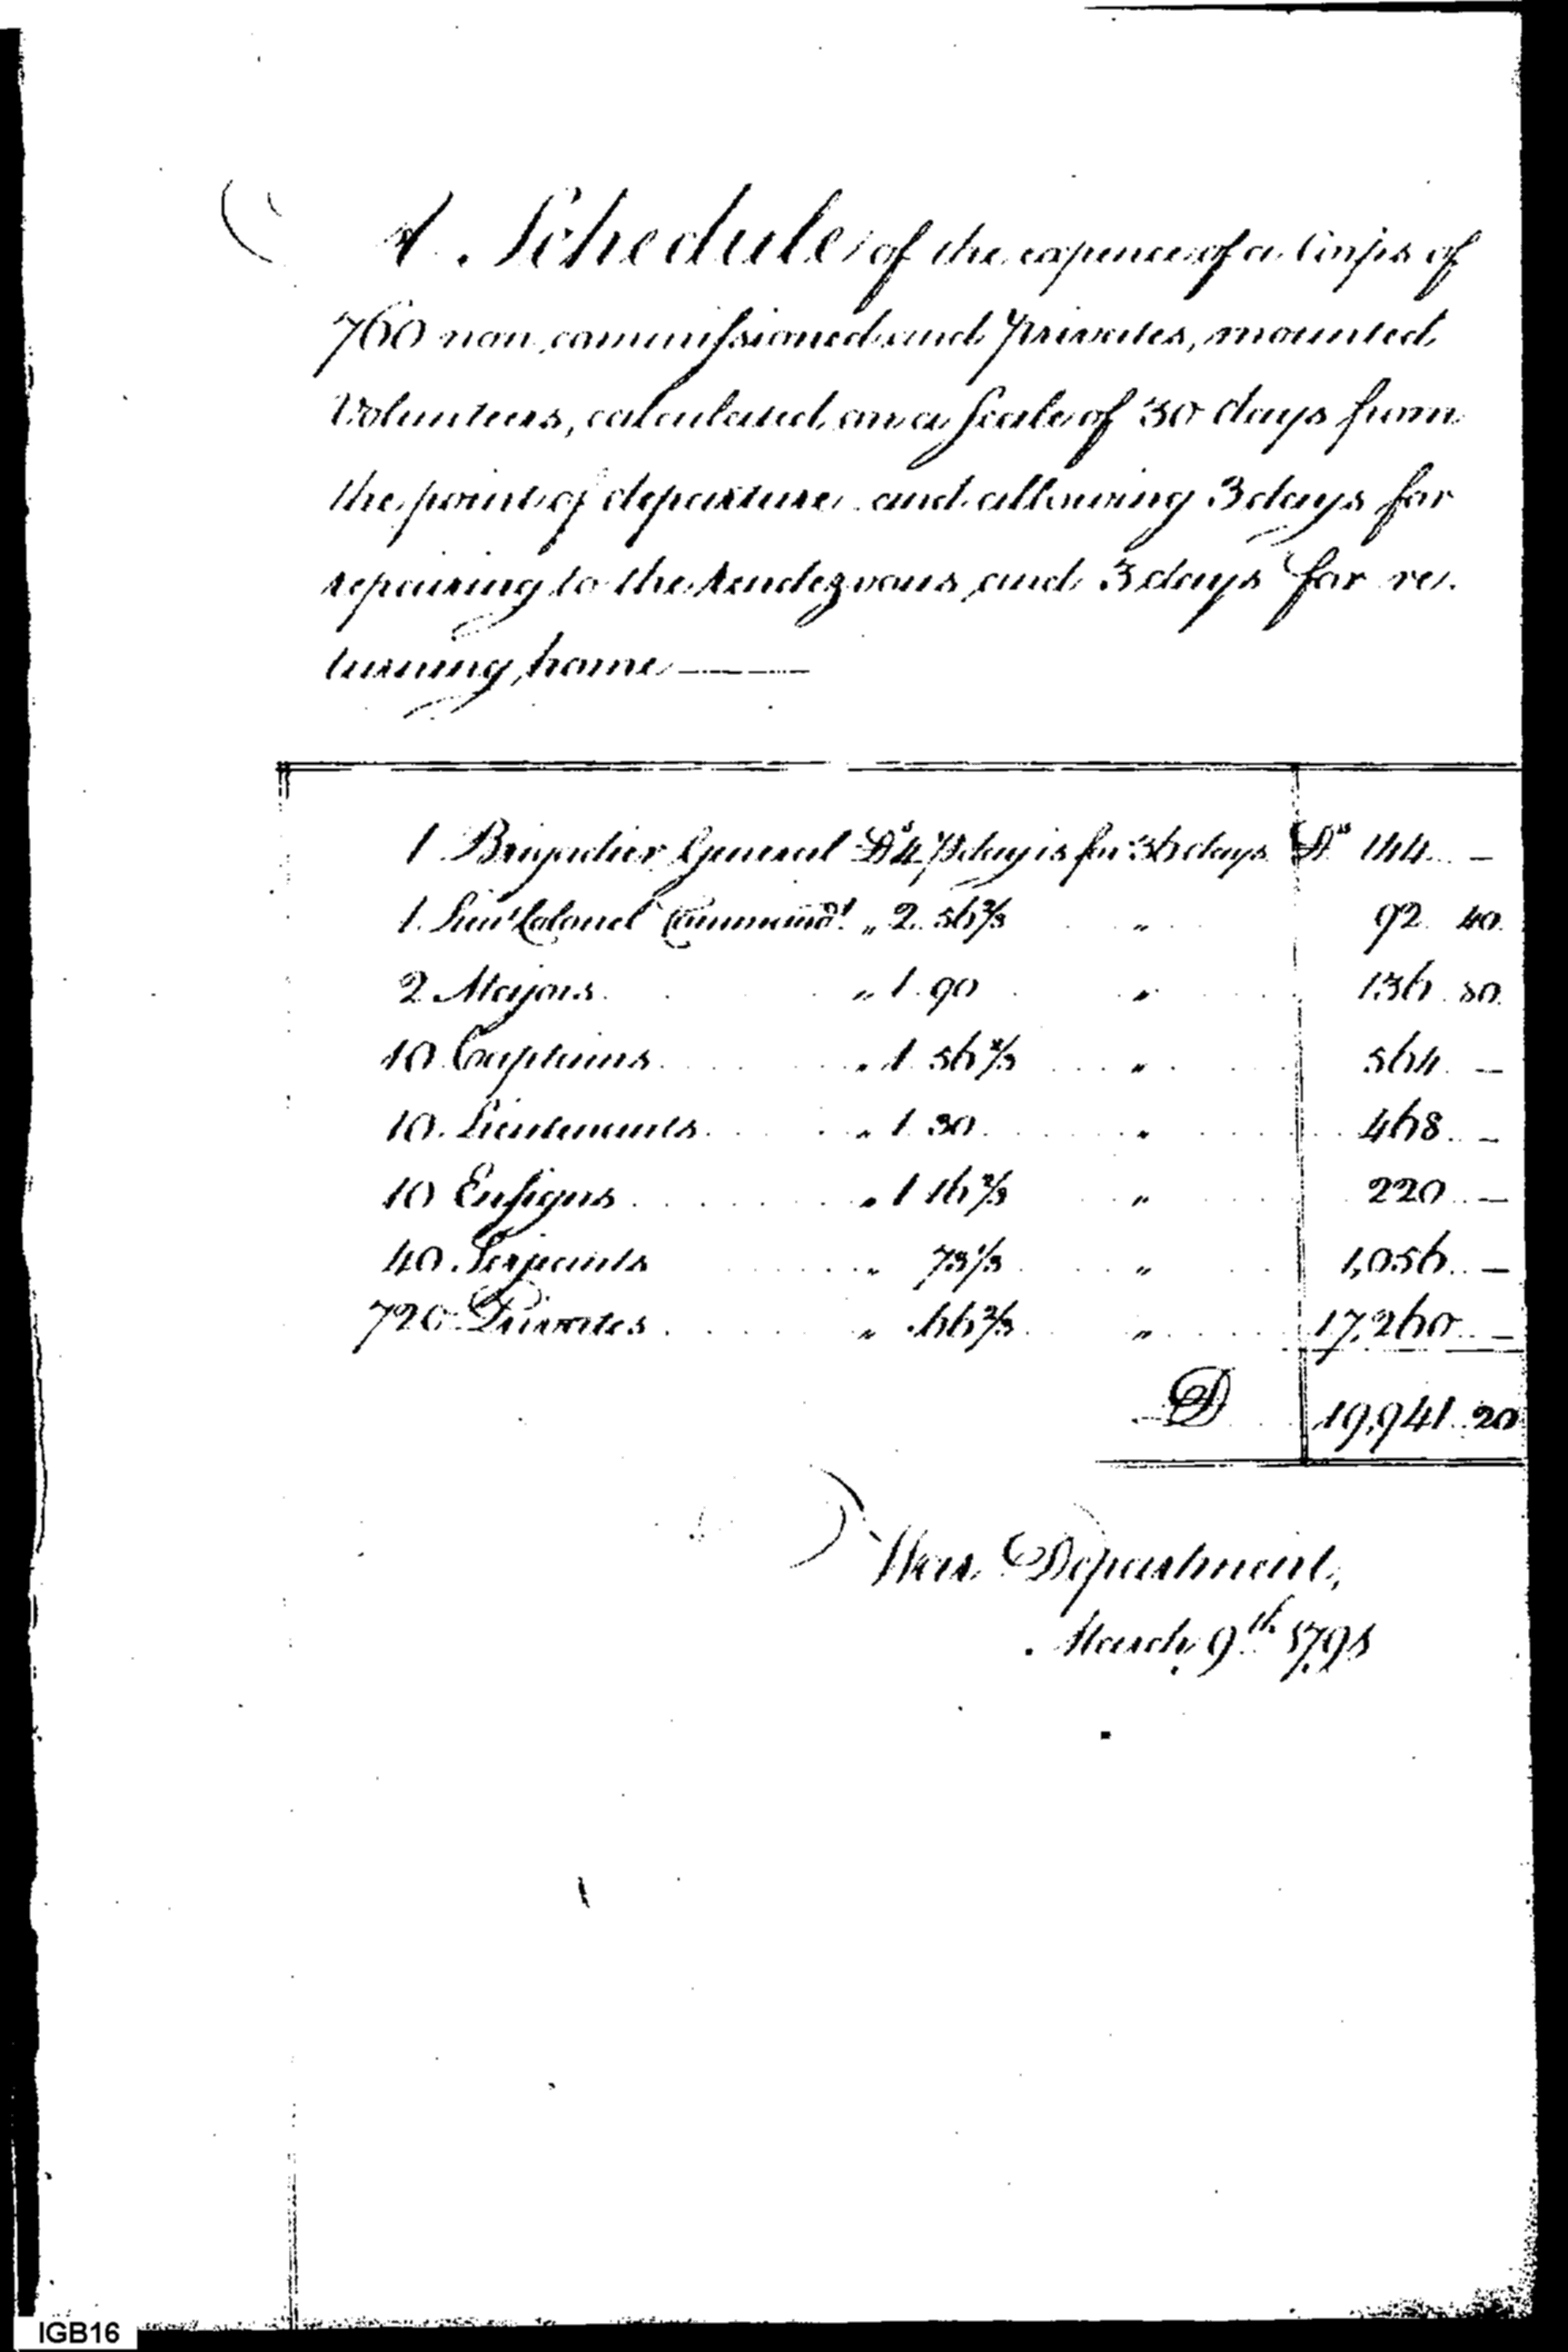 A Schedule of the expence of a Corps of
760 non commissioned and Privates, mounted
Volunteers, calculated on a Scale of 30 days from
the point of departure and allowing 3 days for
repairing to the Rendezvous, and 3 days for re-
turning home ———
1 Brigadier General Ds 4 ⅌ day is for 36 days Ds 144 —
1 Lieut Colonel Commandt " 2.56⅔ " 92 40
2 Majors " 1.90 " 136 80
10 Captains " 1 56⅔ " 564 —
10 Lieutenants " 1 30 " 468 —
10 Ensigns " 1 16⅔ " 220 —
40 Serjeants " 73⅓ " 1,056 —
720 Privates " .66⅔ " 17,260 —
D 19,941 20
War Department,
March 9th 1791
IGB16